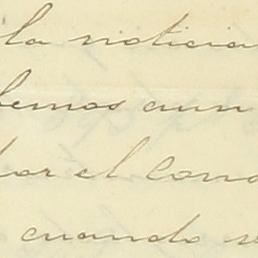 la noticia
bemos aun
por el cono
cuando